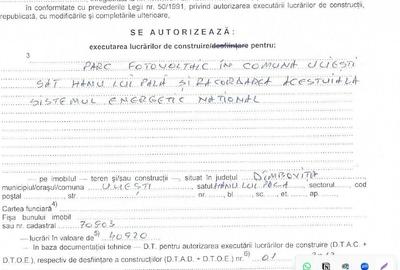 în conformitate cu prevederile Legii nr. 50/1991, privind autorizarea executării lucrărilor de construcții,
republicată, cu modificările și completările ulterioare,
SE AUTORIZEAZĂ:
executarea lucrărilor de construire/desființare pentru:
3
PARC FOTOVOLTAIC ÎN COMUNA ULIEȘTI
SAT HANU LUI PALĂ ȘI RACORDAREA ACESTUIA LA
SISTEMUL ENERGETIC NAȚIONAL
— pe imobilul — teren și/sau construcții —, situat în județul DÎMBOVIȚA
municipiul/orașul/comuna ULIEȘTI satul HANU LUI sectorul cod
poștal , str. nr. , bl. , sc. , et. , ap.
Cartea funciară 4)
Fișa bunului imobil
sau nr. cadastral 70903
— lucrări în valoare de 5) 40920
— în baza documentației tehnice — D.T. pentru autorizarea executării lucrărilor de construire (D.T.A.C. +
D.T.O.E.), respectiv de desființare a construcțiilor (D.T.A.D. + D.T.O.E.) nr. 6) 01